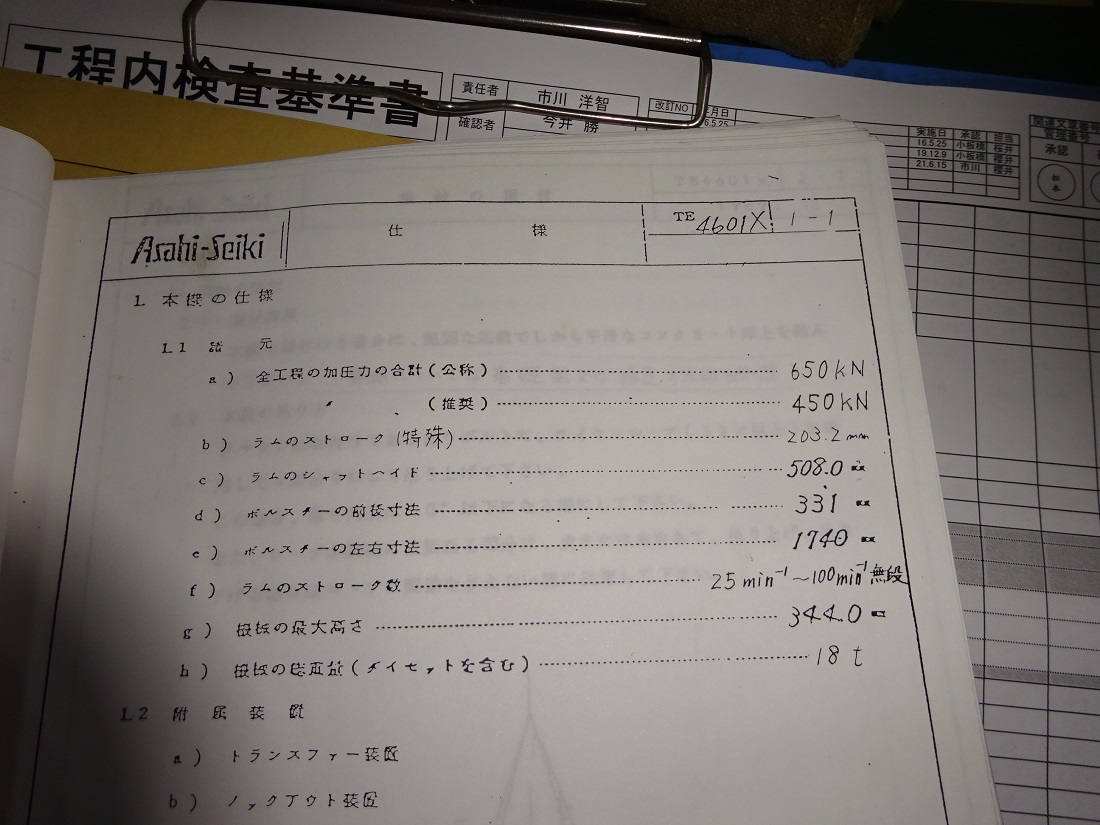 工程内検査基準書
責任者 市川 洋智
確認者 今井 勝
改訂NO 年月日
実施日 承認 担当
16.5.25 小板橋 桜井
19.12.9 小板橋 桜井
21.6.15 市川 櫻井
関連文書番号
管理番号
承認
Asahi-Seiki 仕 様 TE 4601X 1-1
1. 本機の仕様
1.1 諸 元
a) 全工程の加圧力の合計(公称) 650kN
(推奨) 450kN
b) ラムのストローク(特殊) 203.2 mm
c) ラムのシャットハイド 508.0 mm
d) ボルスターの前後寸法 331 mm
e) ボルスターの左右寸法 1740 mm
f) ラムのストローク数 25 min⁻¹～100min⁻¹ 無段
g) 機械の最大高さ 344.0
h) 機械の総重量(ダイセットを含む) 18 t
1.2 附属装置
a) トランスファー装置
b) ノックアウト装置